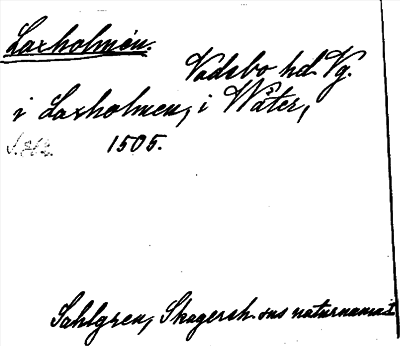 Laxholmen.
Vadsbo hd. Vg.
i Laxholmen, i Wåter,
1505.
Sahlgren, Skagersh. sns naturnamn 1